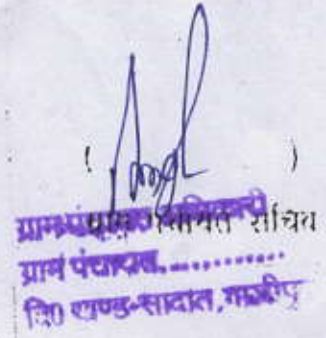 ( )
ग्राम पंचायत सचिव
ग्राम पंचायत अधिकारी
ग्राम पंचायत............
वि0 खण्ड-सादात, गाजीपुर